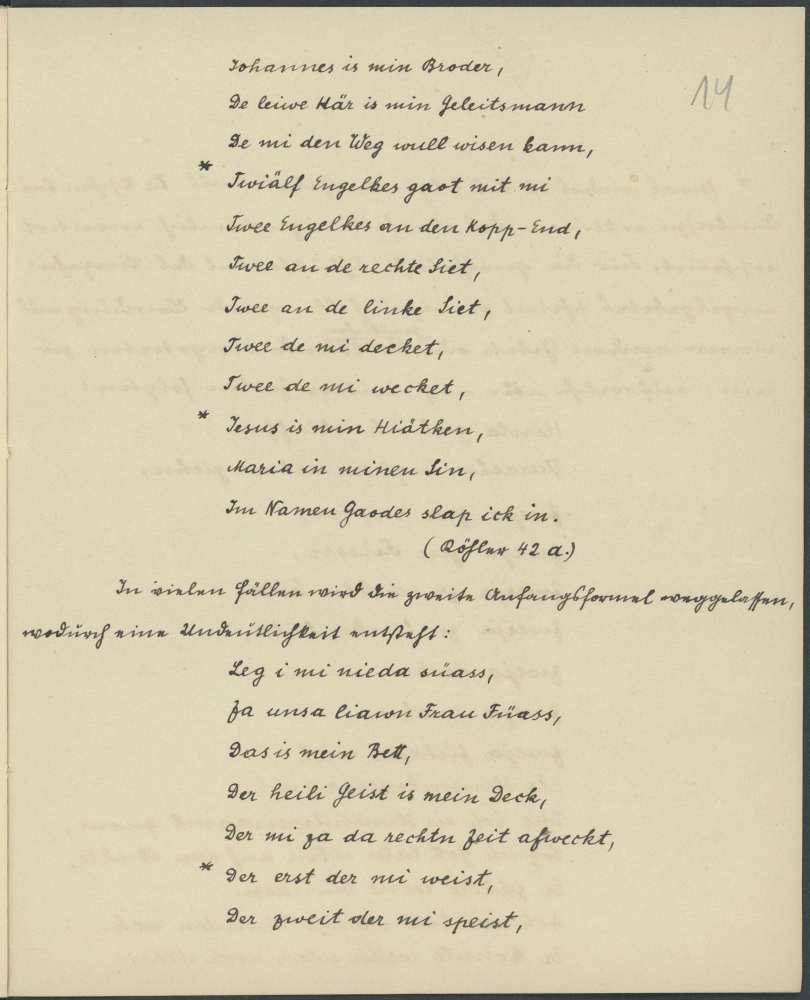 Johannes is min Broder,
14
De leiwe Här is min Geleitsmann
De mi den Weg wull wisen kann,
* Twiälf Engelkes gaot mit mi
Twee Engelkes an den Kopp-End,
Twee an de rechte Siet,
Twee an de linke Siet,
Twee de mi decket,
Twee de mi wecket,
* Jesus is min Hiätken,
Maria in minen Sin,
Im Namen Gaodes slap ick in.
(Köhler 42 a.)
In vielen Fällen wird die zweite Anfangsformel weggelassen,
wodurch eine Undeutlichkeit entsteht:
Leg i mi nieda süass,
Za unsa liawn Frau Füass,
Das is mein Bett,
Der heili Geist is mein Deck,
Der mi za da rechtn Zeit afweckt,
* Der erst der mi weist,
Der zweit der mi speist,